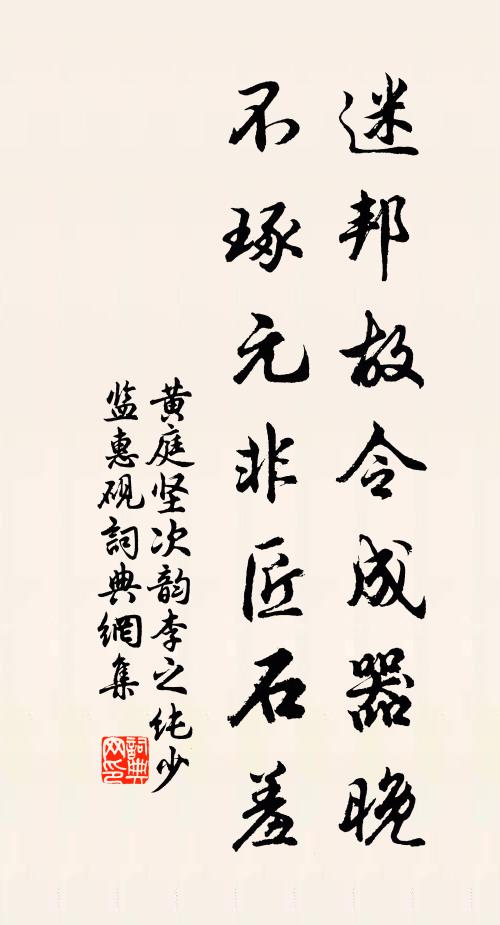 迷邦故令成器晚
不琢元非匠石羞
黄庭坚次韵李之纯少
监惠砚詞典網集
詞典
网印